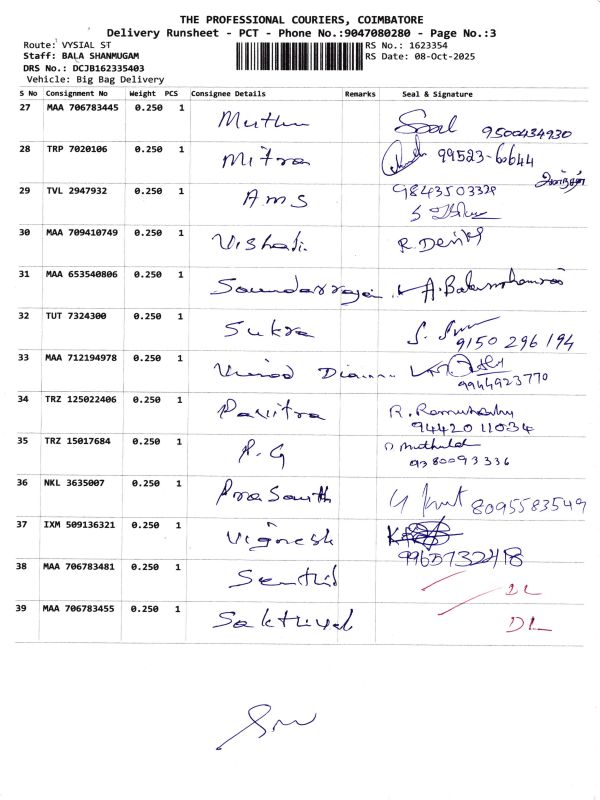 THE PROFESSIONAL COURIERS, COIMBATORE
Delivery Runsheet - PCT - Phone No.:9047080280 - Page No.:3
Route: VYSIAL ST RS No.: 1623354
Staff: BALA SHANMUGAM RS Date: 08-Oct-2025
DRS No.: DCJB162335403
Vehicle: Big Bag Delivery
S No Consignment No Weight PCS Consignee Details Remarks Seal & Signature
27 MAA 706783445 0.250 1 Muthu Seal 9500434930
28 TRP 7020106 0.250 1 Mitra 99523-60644
29 TVL 2947932 0.250 1 AMS 9843503328
30 MAA 709410749 0.250 1 Vishali R. Devika
31 MAA 653540806 0.250 1 Soundarraja
32 TUT 7324300 0.250 1 Sukra 9150 296 194
33 MAA 712194978 0.250 1 Vinod 9944923770
34 TRZ 125022406 0.250 1 Pavitra 94420 11034
35 TRZ 15017684 0.250 1 P.G 9380093336
36 NKL 3635007 0.250 1 Prasanth 8095583549
37 IXM 509136321 0.250 1 Vignesh 9965732418
38 MAA 706783481 0.250 1 Senthil DL
39 MAA 706783455 0.250 1 Sakthivel DL